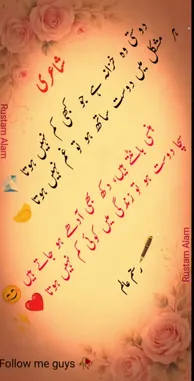 شاعری
دوستی وہ خزانہ ہے جو کبھی کم نہیں ہوتا
ہر مشکل میں دوست ساتھ ہو تو غم نہیں ہوتا
ہنسی بانٹتے ہیں، دکھ بھی آدھے ہو جاتے ہیں
سچا دوست ہو تو زندگی میں کوئی کم نہیں ہوتا
رستم عالم
Rustam Alam
Rustam Alam
Follow me guys